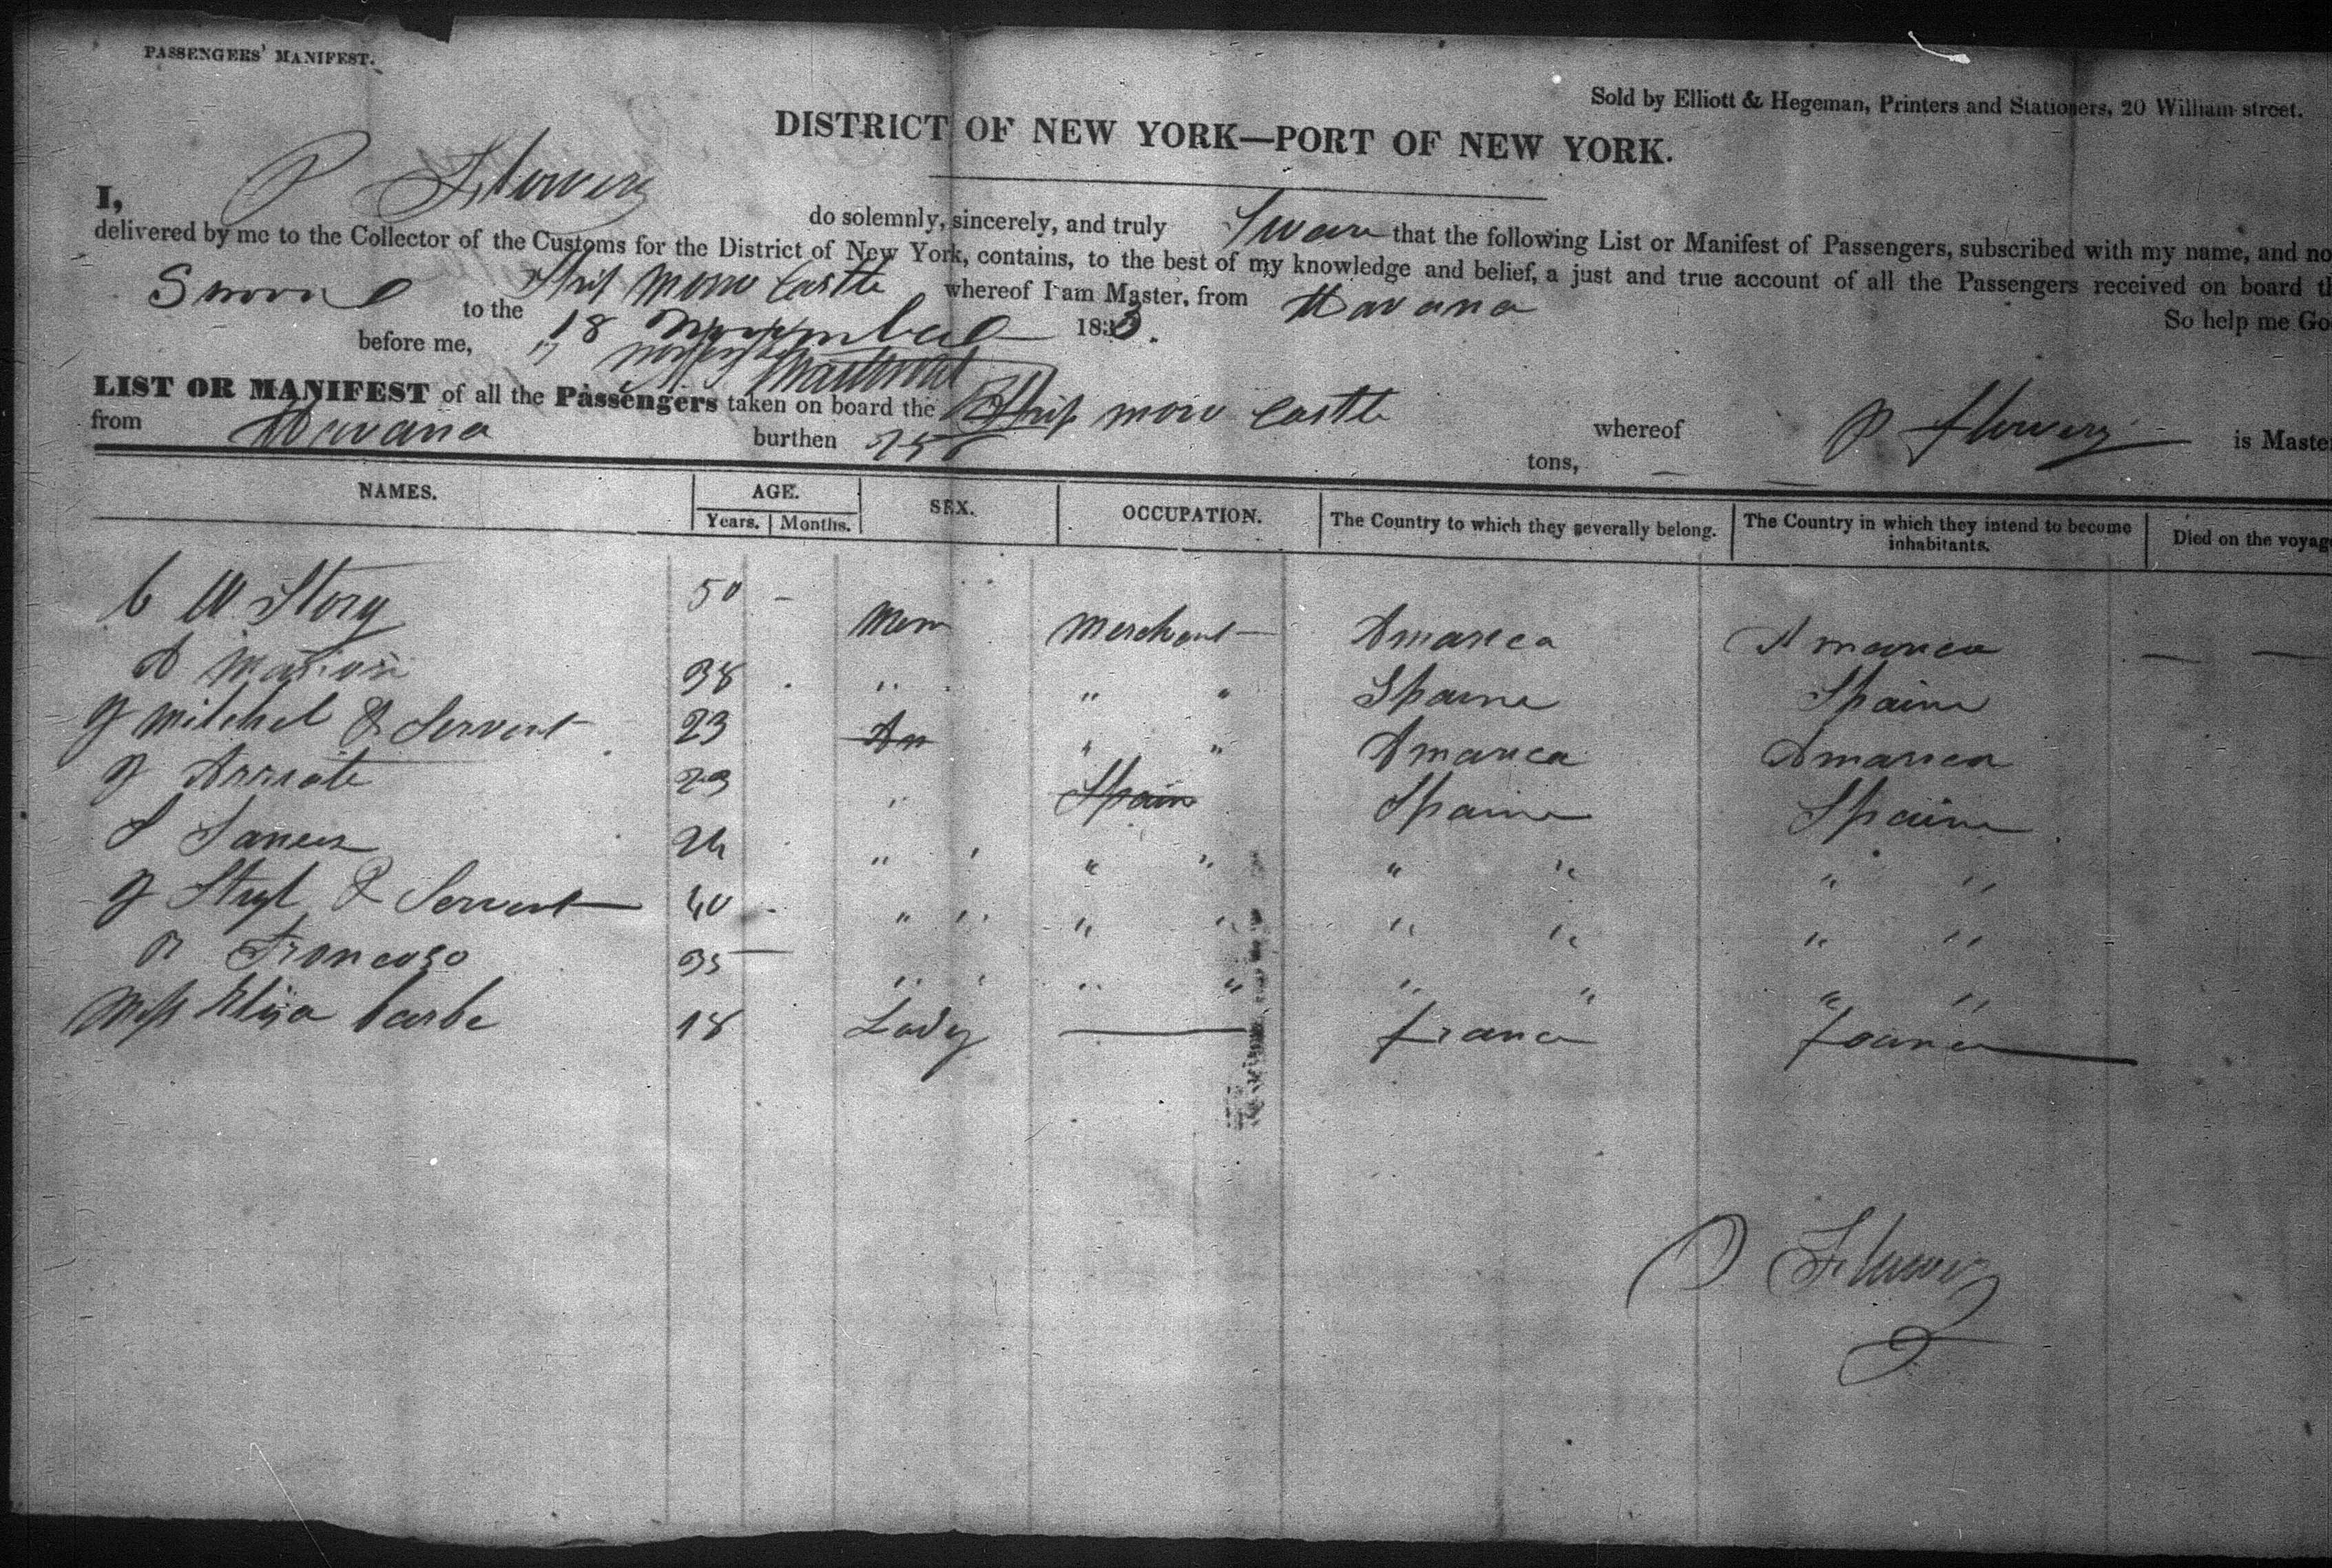 PASSENGERS' MANIFEST.
Sold by Elliott & Hegeman, Printers and Stationers, 20 William street.
DISTRICT OF NEW YORK—PORT OF NEW YORK.
I, P Flowery do solemnly, sincerely, and truly Swear that the following List or Manifest of Passengers, subscribed with my name, and no
delivered by me to the Collector of the Customs for the District of New York, contains, to the best of my knowledge and belief, a just and true account of all the Passengers received on board th
to the Ship Morro Castle whereof I am Master, from Havana
So help me Go
before me, 18 November 1833.
LIST OR MANIFEST of all the Passengers taken on board the Ship moro Castle whereof P Flowery is Master
from Havana burthen tons,
NAMES. AGE. SEX. OCCUPATION. The Country to which they severally belong. The Country in which they intend to become inhabitants. Died on the voyag
Years. Months.
C W Story 50 - Men Merchant Amarica Amarica — —
A 38 " " " Spaine Spaine
J Mitchel & Servent 23 An " " Amarica Amarica
J Arriate 23 " Spain Spaine Spaine
S 24 " " " " " " " "
J & Servent 40 " " " " " " " "
35 " " " " " " " "
Miss Eliza Carbe 18 Lady — France France
P Flowery